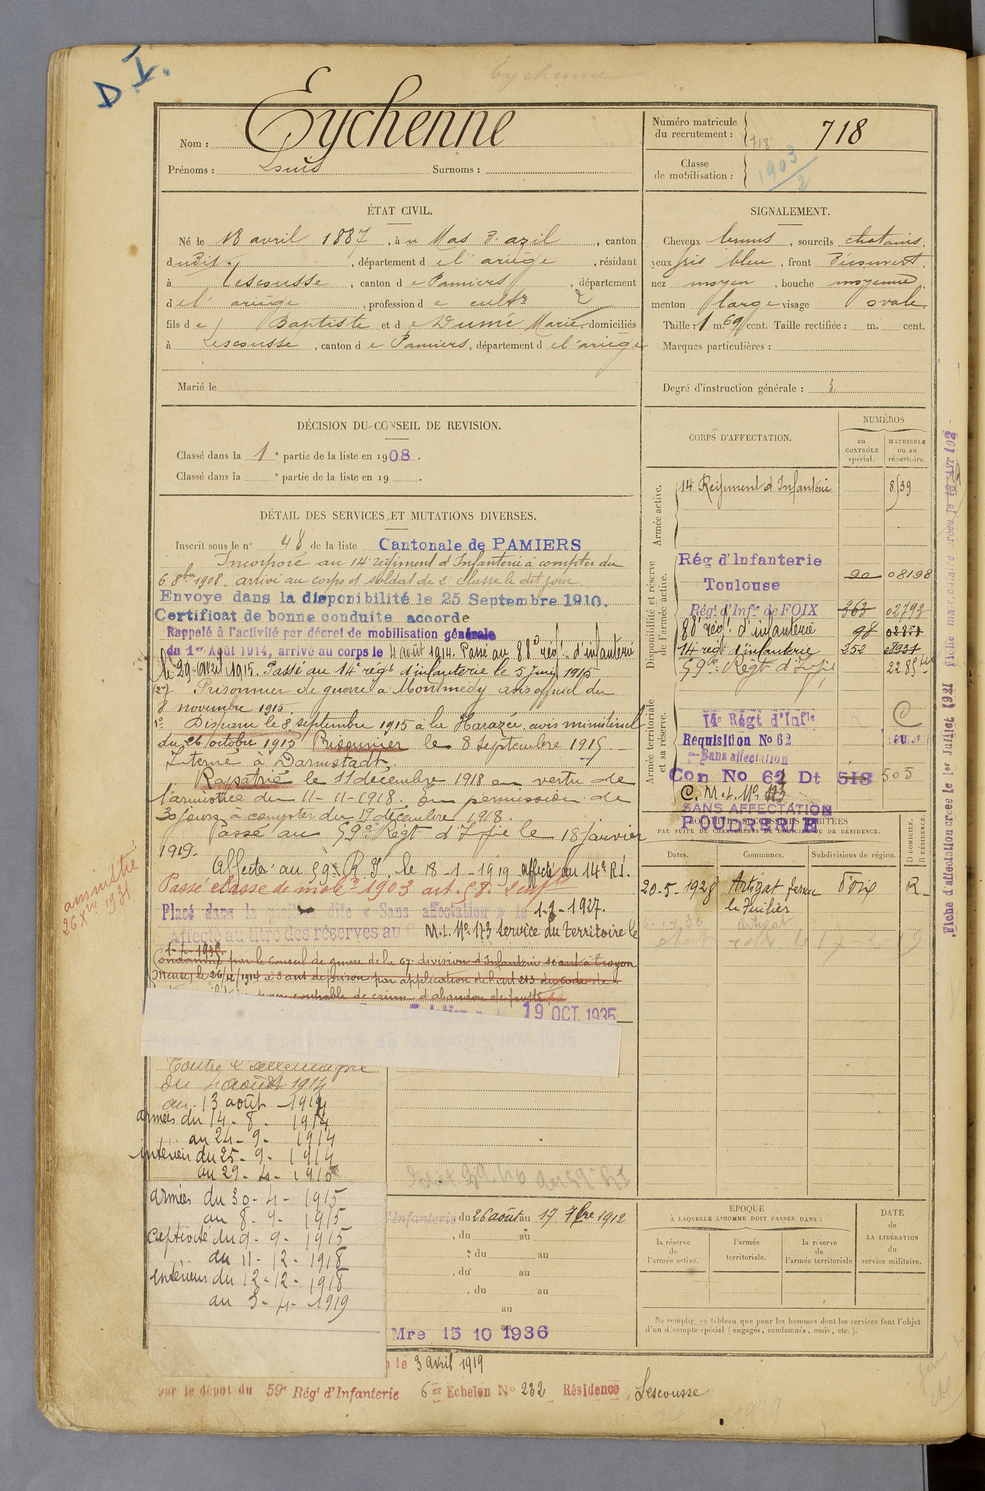 D I.
Eychenne
Nom : Eychenne
Prénoms : Louis Surnoms :
Numéro matricule du recrutement : 718
718
Classe de mobilisation : 1903/2
ÉTAT CIVIL.
Né le 18 avril 1887, à u Mas d'azil, canton
du dit, département de l'ariège, résidant
à Lescousse, canton de Pamiers, département
de l'ariège, profession de cultr 2
fils de Baptiste et de Dumé Marie, domiciliés
à Lescousse, canton de Pamiers, département de l'ariège
Marié le
SIGNALEMENT.
Cheveux bruns, sourcils chatains,
yeux gris bleu, front découvert,
nez moyen, bouche moyenne,
menton large visage ovale
Taille : 1 m 69 cent. Taille rectifiée : m. cent.
Marques particulières :
Degré d'instruction générale : 3
DÉCISION DU CONSEIL DE REVISION.
Classé dans la 1e partie de la liste en 1908.
Classé dans la e partie de la liste en 19 .
DÉTAIL DES SERVICES ET MUTATIONS DIVERSES.
Inscrit sous le n° 48 de la liste Cantonale de PAMIERS
Incorporé au 14e régiment d'Infanterie à compter du
6 8bre 1908. arrivé au corps et soldat de 2e classe le dit jour
Envoye dans la disponibilité le 25 Septembre 1910.
Certificat de bonne conduite accorde
Rappelé à l'activité par décret de mobilisation générale
du 1er Août 1914, arrivé au corps le 4 août 1914. Passé au 88e régt d'infanterie
le 29 avril 1915. Passé au 14e régt d'infanterie le 5 juin 1915
Prisonnier de guerre à Montmédy avis officiel du
8 novembre 1915.
Disparu le 8 septembre 1915 à la Harazée, avis ministériel
du 26 octobre 1915 Prisonnier le 8 septembre 1915
Interné à Darmstadt.
Rapatrié le 11 décembre 1918 en vertu de
l'armistice du 11-11-1918. En permission de
30 jours à compter du 17 décembre 1918.
Passé au 59e Regt d'Ifie le 18 janvier
1919.
Affecté au 59e R.I. le 18-1-1919 affecté au 14e R.I.
Passé classe de mobon 1903 art. 58.
Placé dans la position dite « Sans affectation » le 1-2-1927.
Affecté aux des réserves au M.L. No 173 service du territoire le
Condamné par le Conseil de guerre de la 67e division d'Infanterie séant à Troyon
(Meuse) le 26/12/1914 à 3 ans de prison par application de l'art 213 du code de
coupable de crime d'abandon de poste
19 OCT. 1935
amnistié
26 Xbre 1931
Contre l'Allemagne
du 4 août 1914
au 13 août 1914
armées du 14-8-1914
au 24-9-1914
intérieur du 25-9-1914
au 29-4-1915
armées du 30-4-1915
au 8-9-1915
captivité du 9-9-1915
au 11-12-1918
intérieur du 12-12-1918
au 3-4-1919
d'Infanterie du 26 août au 17 7bre 1912
, du au
, du au
, du au
, du au
au
au
Mre 15 10 1936
le 3 avril 1919
par le dépot du 59e Régt d'Infanterie 6er Echelon No 232 Résidence Lescousse
CORPS D'AFFECTATION.
NUMÉROS
au CONTRÔLE spécial.
MATRICULE ou au répertoire.
Armée active.
14 Régiment d'Infanterie 8139
Disponibilité et réserve de l'armée active.
Rég d'Infanterie
Toulouse 20 08198
Régt d'Infie de FOIX 263 02793
88e régt d'infanterie 98
14 régt d'infanterie 252
59e Regt d'Ifie
Armée territoriale et sa réserve.
14e Régt d'Infie
C
Requisition No 62
Sans affectation
Con No 62 Dt 518 505
C. M.L. No 173
SANS AFFECTATION
POUDRERIE
LOCALITÉS SUCCESSIVES HABITÉES
PAR SUITE DE CHANGEMENTS DE DOMICILE OU DE RÉSIDENCE.
Dates. Communes. Subdivisions de région. D DOMICILE. R RÉSIDENCE.
20-5-1928 Artigat ferme Foix R
EPOQUE
À LAQUELLE L'HOMME DOIT PASSER DANS :
la réserve de l'armée active.
l'armée territoriale.
la réserve de l'armée territoriale
DATE de LA LIBÉRATION du service militaire.
Ne remplir ce tableau que pour les hommes dont les services font l'objet
d'un décompte spécial (engagés, condamnés, omis, etc.).
Fiche d'affectation créée le 1er Juillet 1921 Fiche